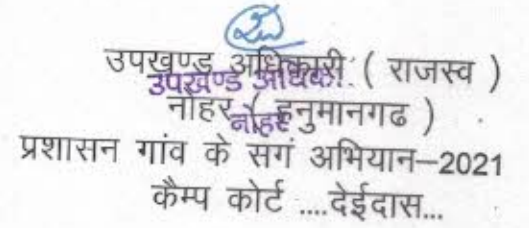 उपखण्ड अधिकारी ( राजस्व )
उपखण्ड अधिका.
नोहर ( हनुमानगढ )
नोहर
प्रशासन गांव के सगं अभियान–2021
कैम्प कोर्ट ....देईदास...